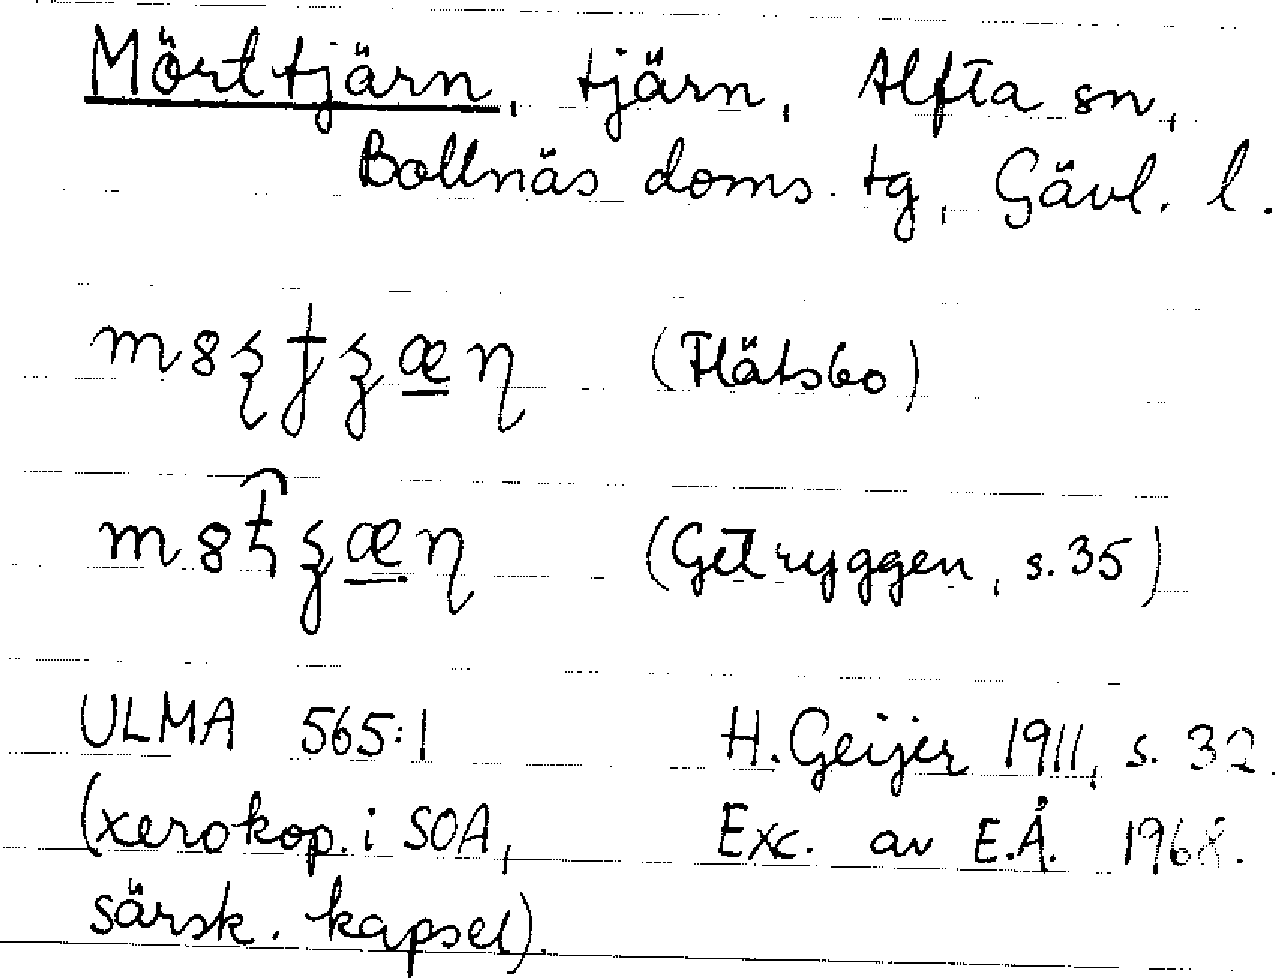 Mörttjärn, tjärn, Alfta sn,
Bollnäs doms. tg, Gävl. l.
(Flätsbo)
(Getryggen, s. 35)
ULMA 565:1 H. Geijer 1911, s. 32.
(xerokop. i SOA, Exc. av E.Å. 1968.
särsk. kapsel).